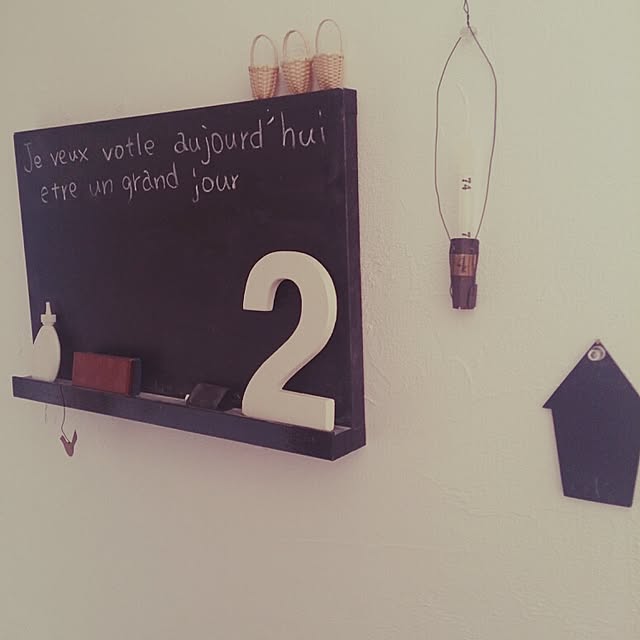 Je veux votle aujourd'hui
etre un grand jour
2
74
7